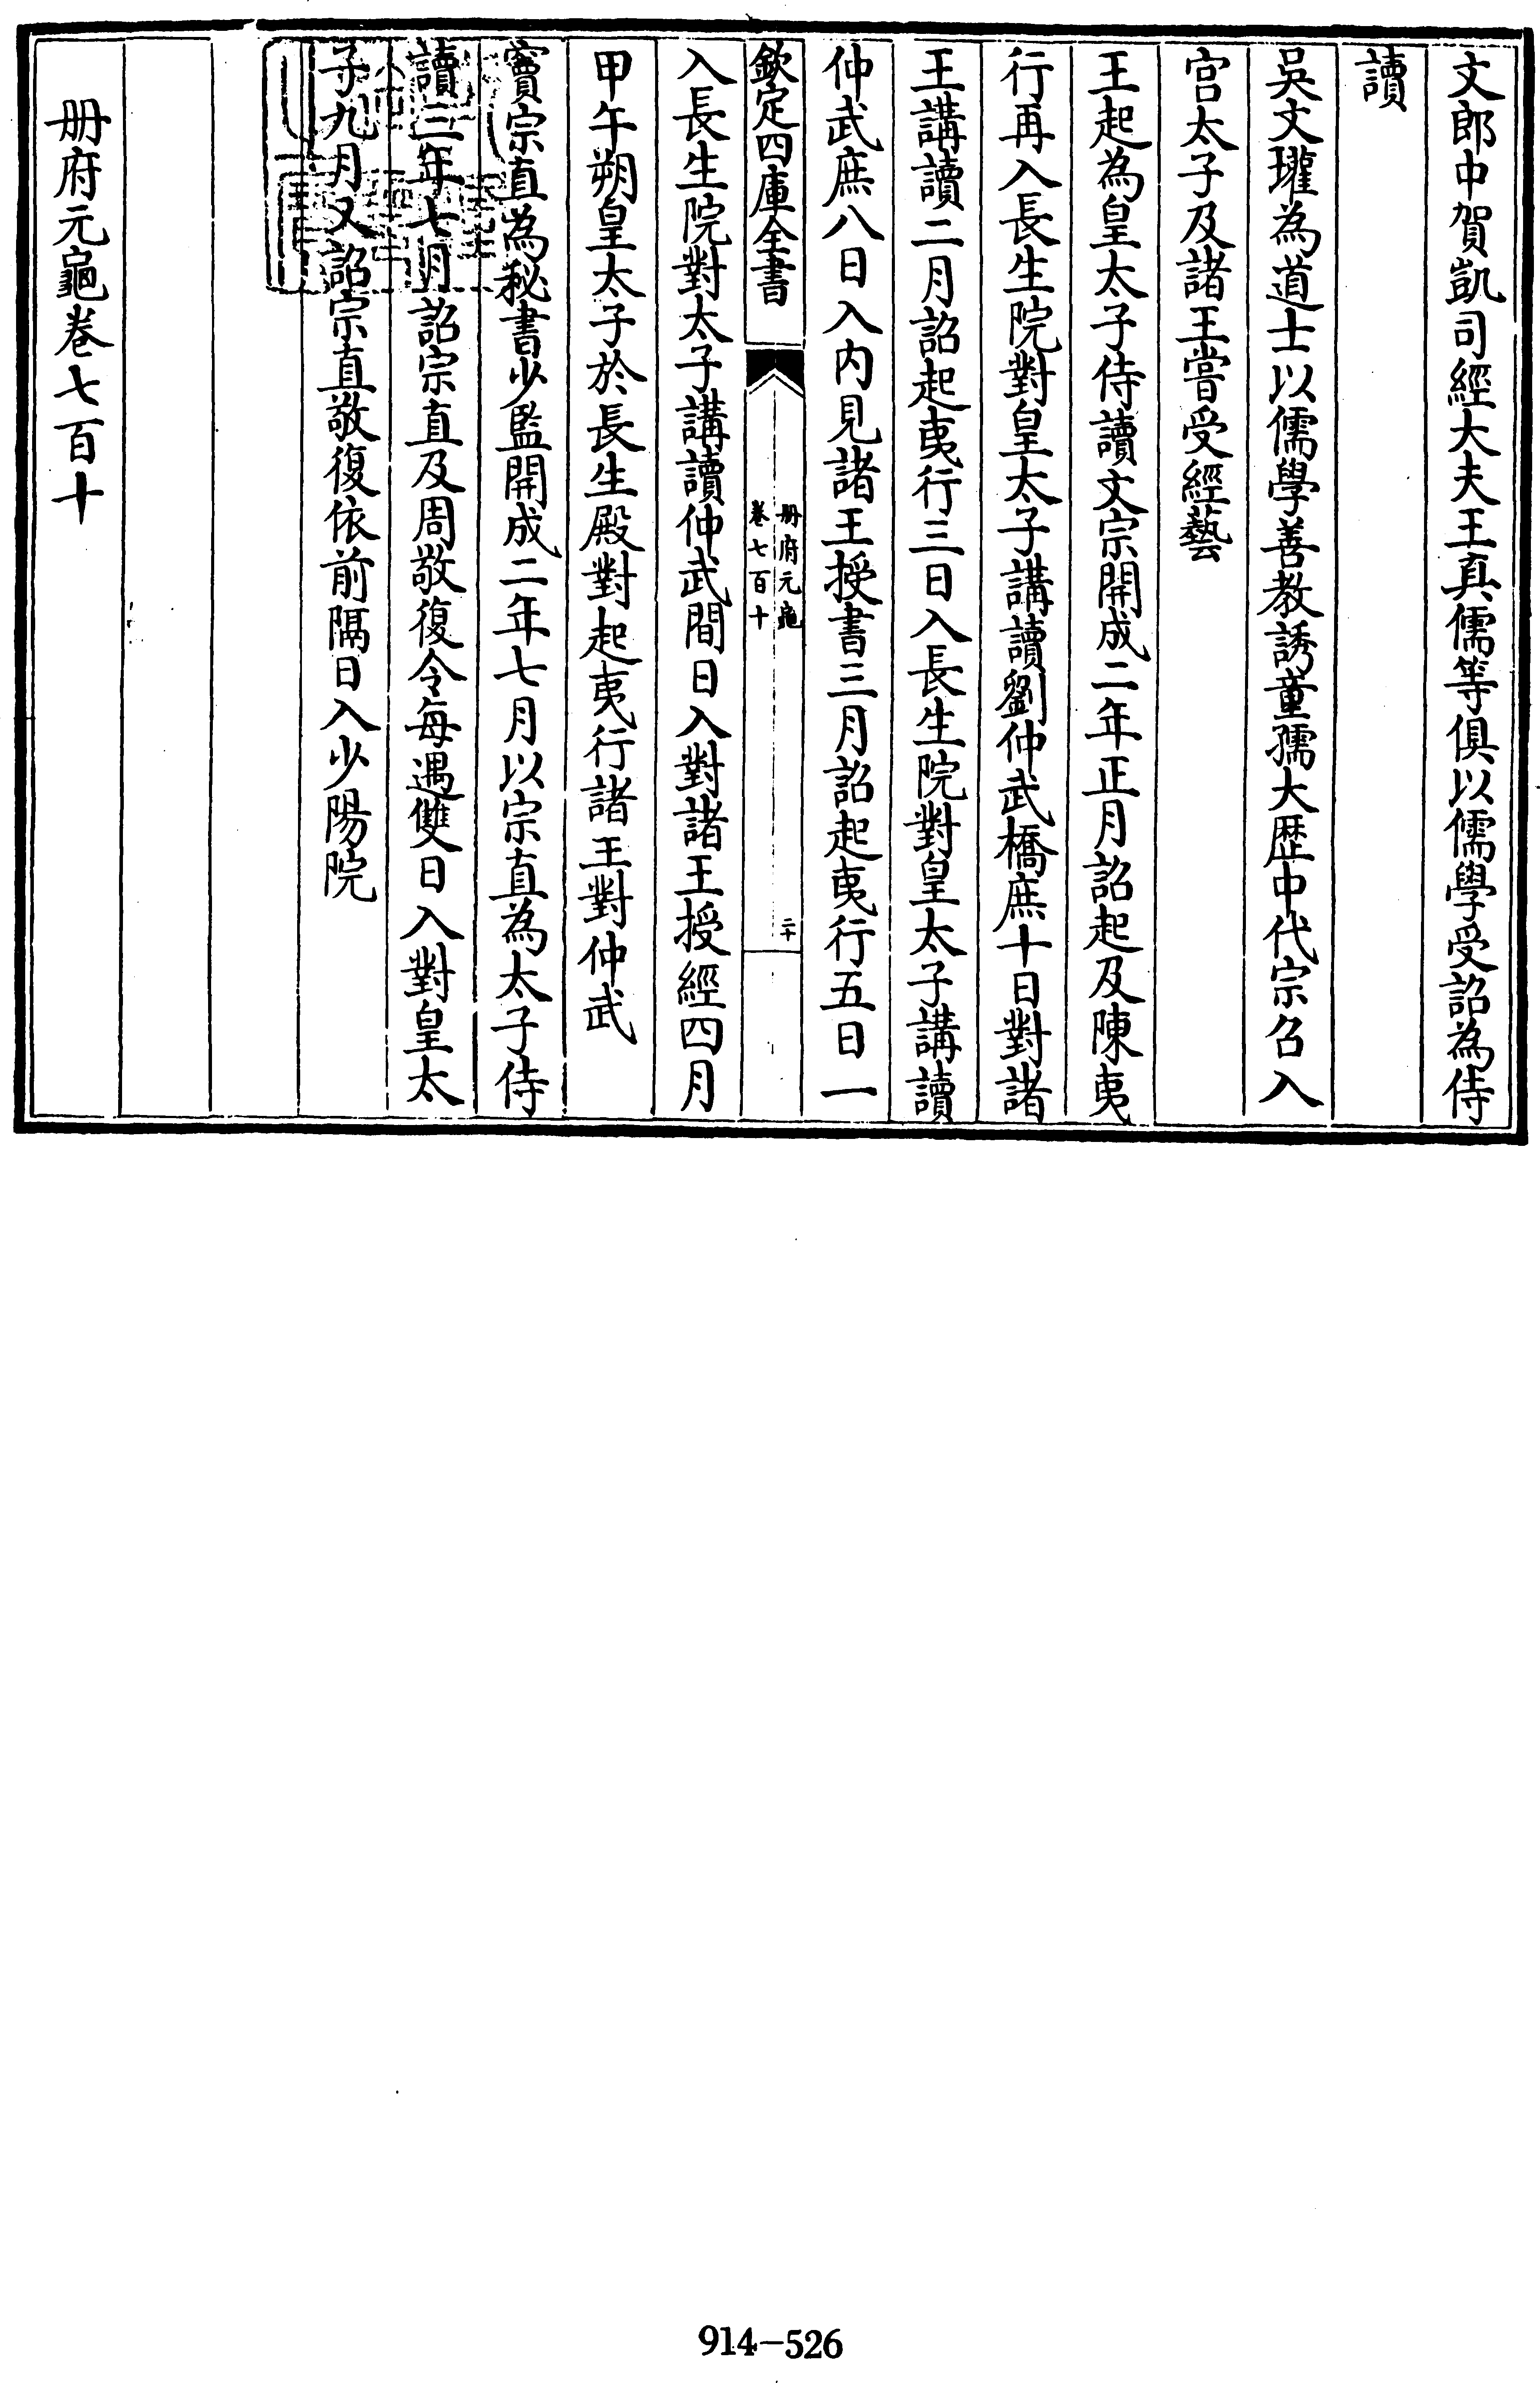 文郎中賀凱司經大夫王真儒等俱以儒學受詔為侍
讀
吳文瓘為道士以儒學善教誘童孺大歴中代宗召入
宫太子及諸王嘗受經藝
王起為皇太子侍讀文宗開成二年正月詔起及陳夷
行再入長生院對皇太子講讀劉仲武橋庶十日對諸
王講讀二月詔起夷行三日入長生院對皇太子講讀
仲武庶八日入内見諸王授書三月詔起夷行五日一
欽定四庫全書
册府元龜
卷七百十
二十
入長生院對太子講讀仲武間日入對諸王授經四月
甲午朔皇太子於長生殿對起夷行諸王對仲武
竇宗直為秘書少監開成二年七月以宗直為太子侍
讀三年七月詔宗直及周敬復令每遇雙日入對皇太
子九月又詔宗直敬復依前隔日入少陽院
册府元龜卷七百十
914-526